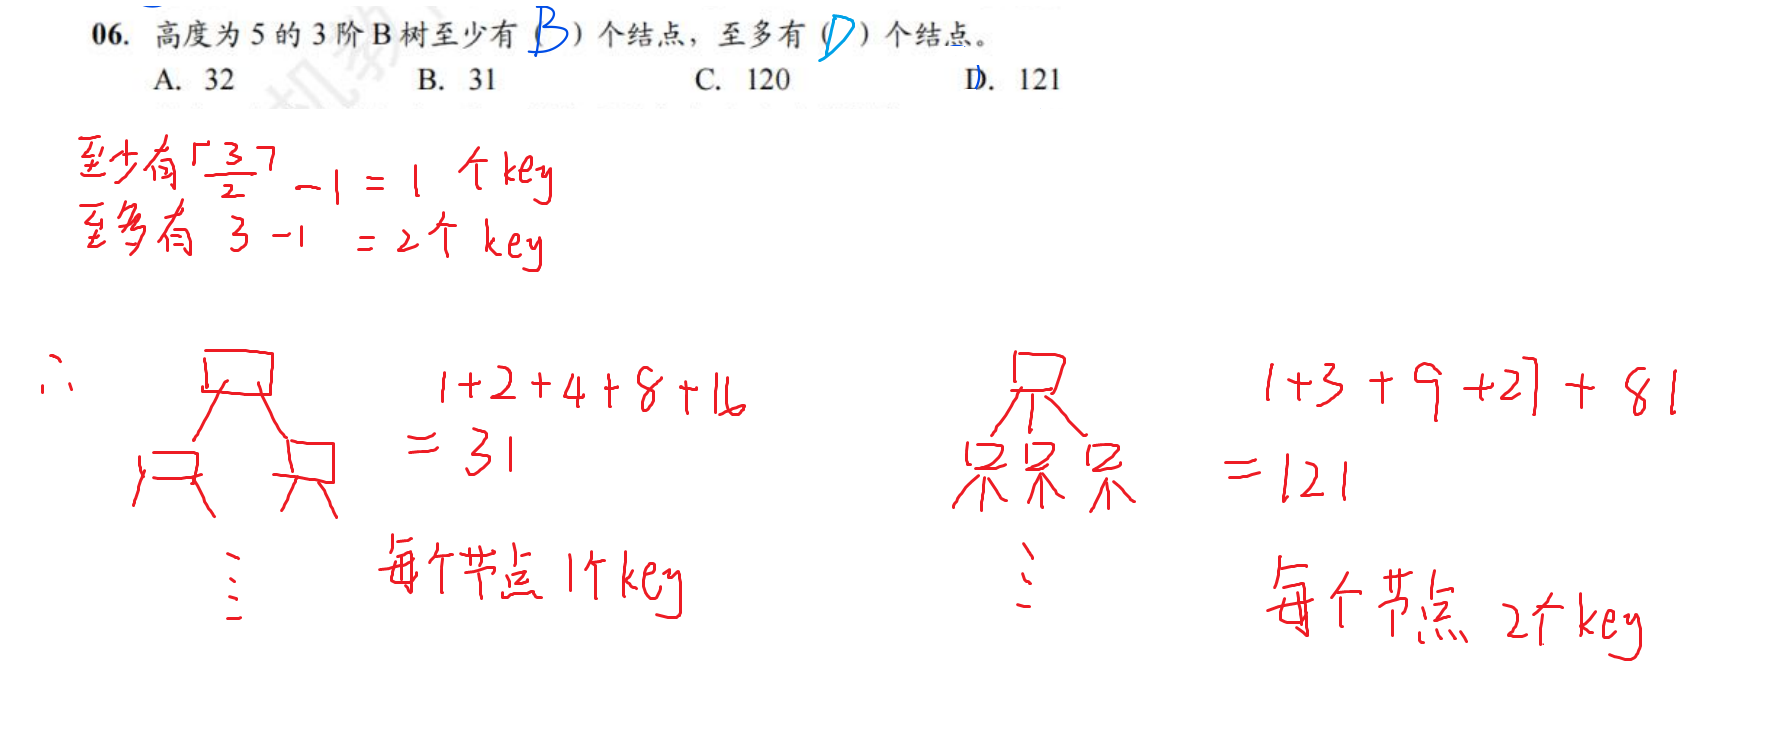 06. 高度为 5 的 3 阶 B 树至少有（B）个结点，至多有（D）个结点。
A. 32 B. 31 C. 120 D. 121
至少有⌈3/2⌉-1=1 个key
至多有 3-1 =2个 key
∴
1+2+4+8+16
=31
每个节点 1个key
1+3+9+27+81
=121
每个节点 2个key